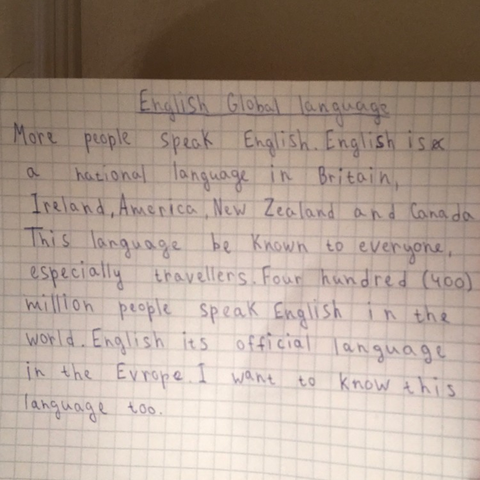 English Global language
More people speak English. English is
a national language in Britain,
Ireland, America, New Zealand and Canada
This language be known to everyone,
especially travellers. Four hundred (400)
million people speak English in the
world. English its official language
in the Evrope. I want to know this
language too.